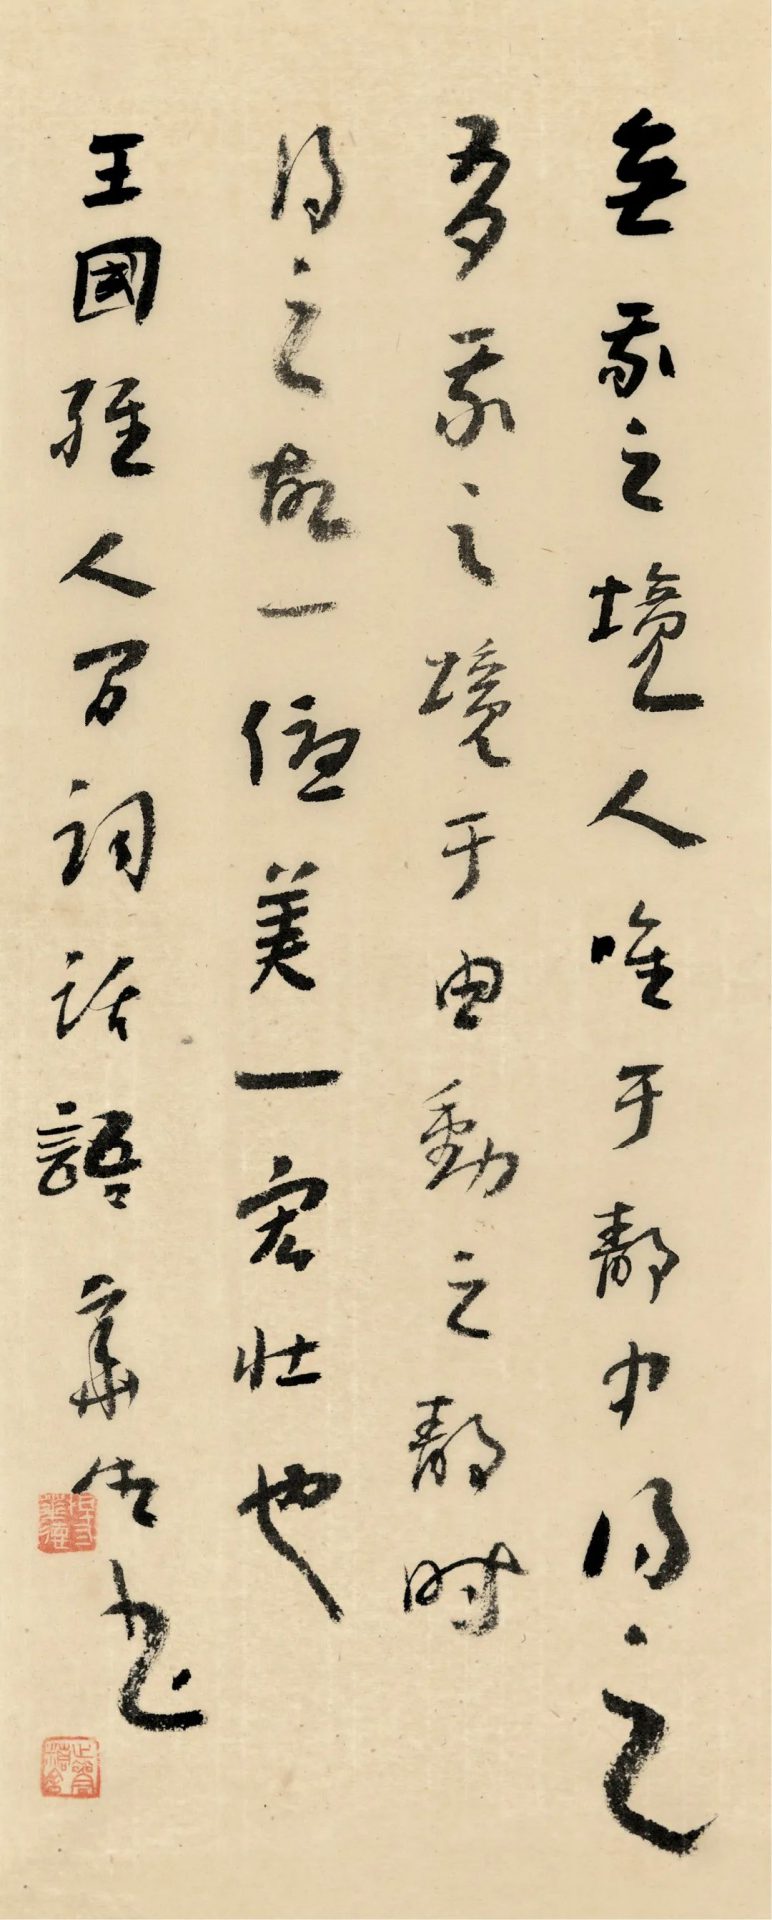 無我之境人唯于靜中得之
有我之境于由動之靜時
得之故一優美一宏壯也
王國維人間詞話語 華仁書